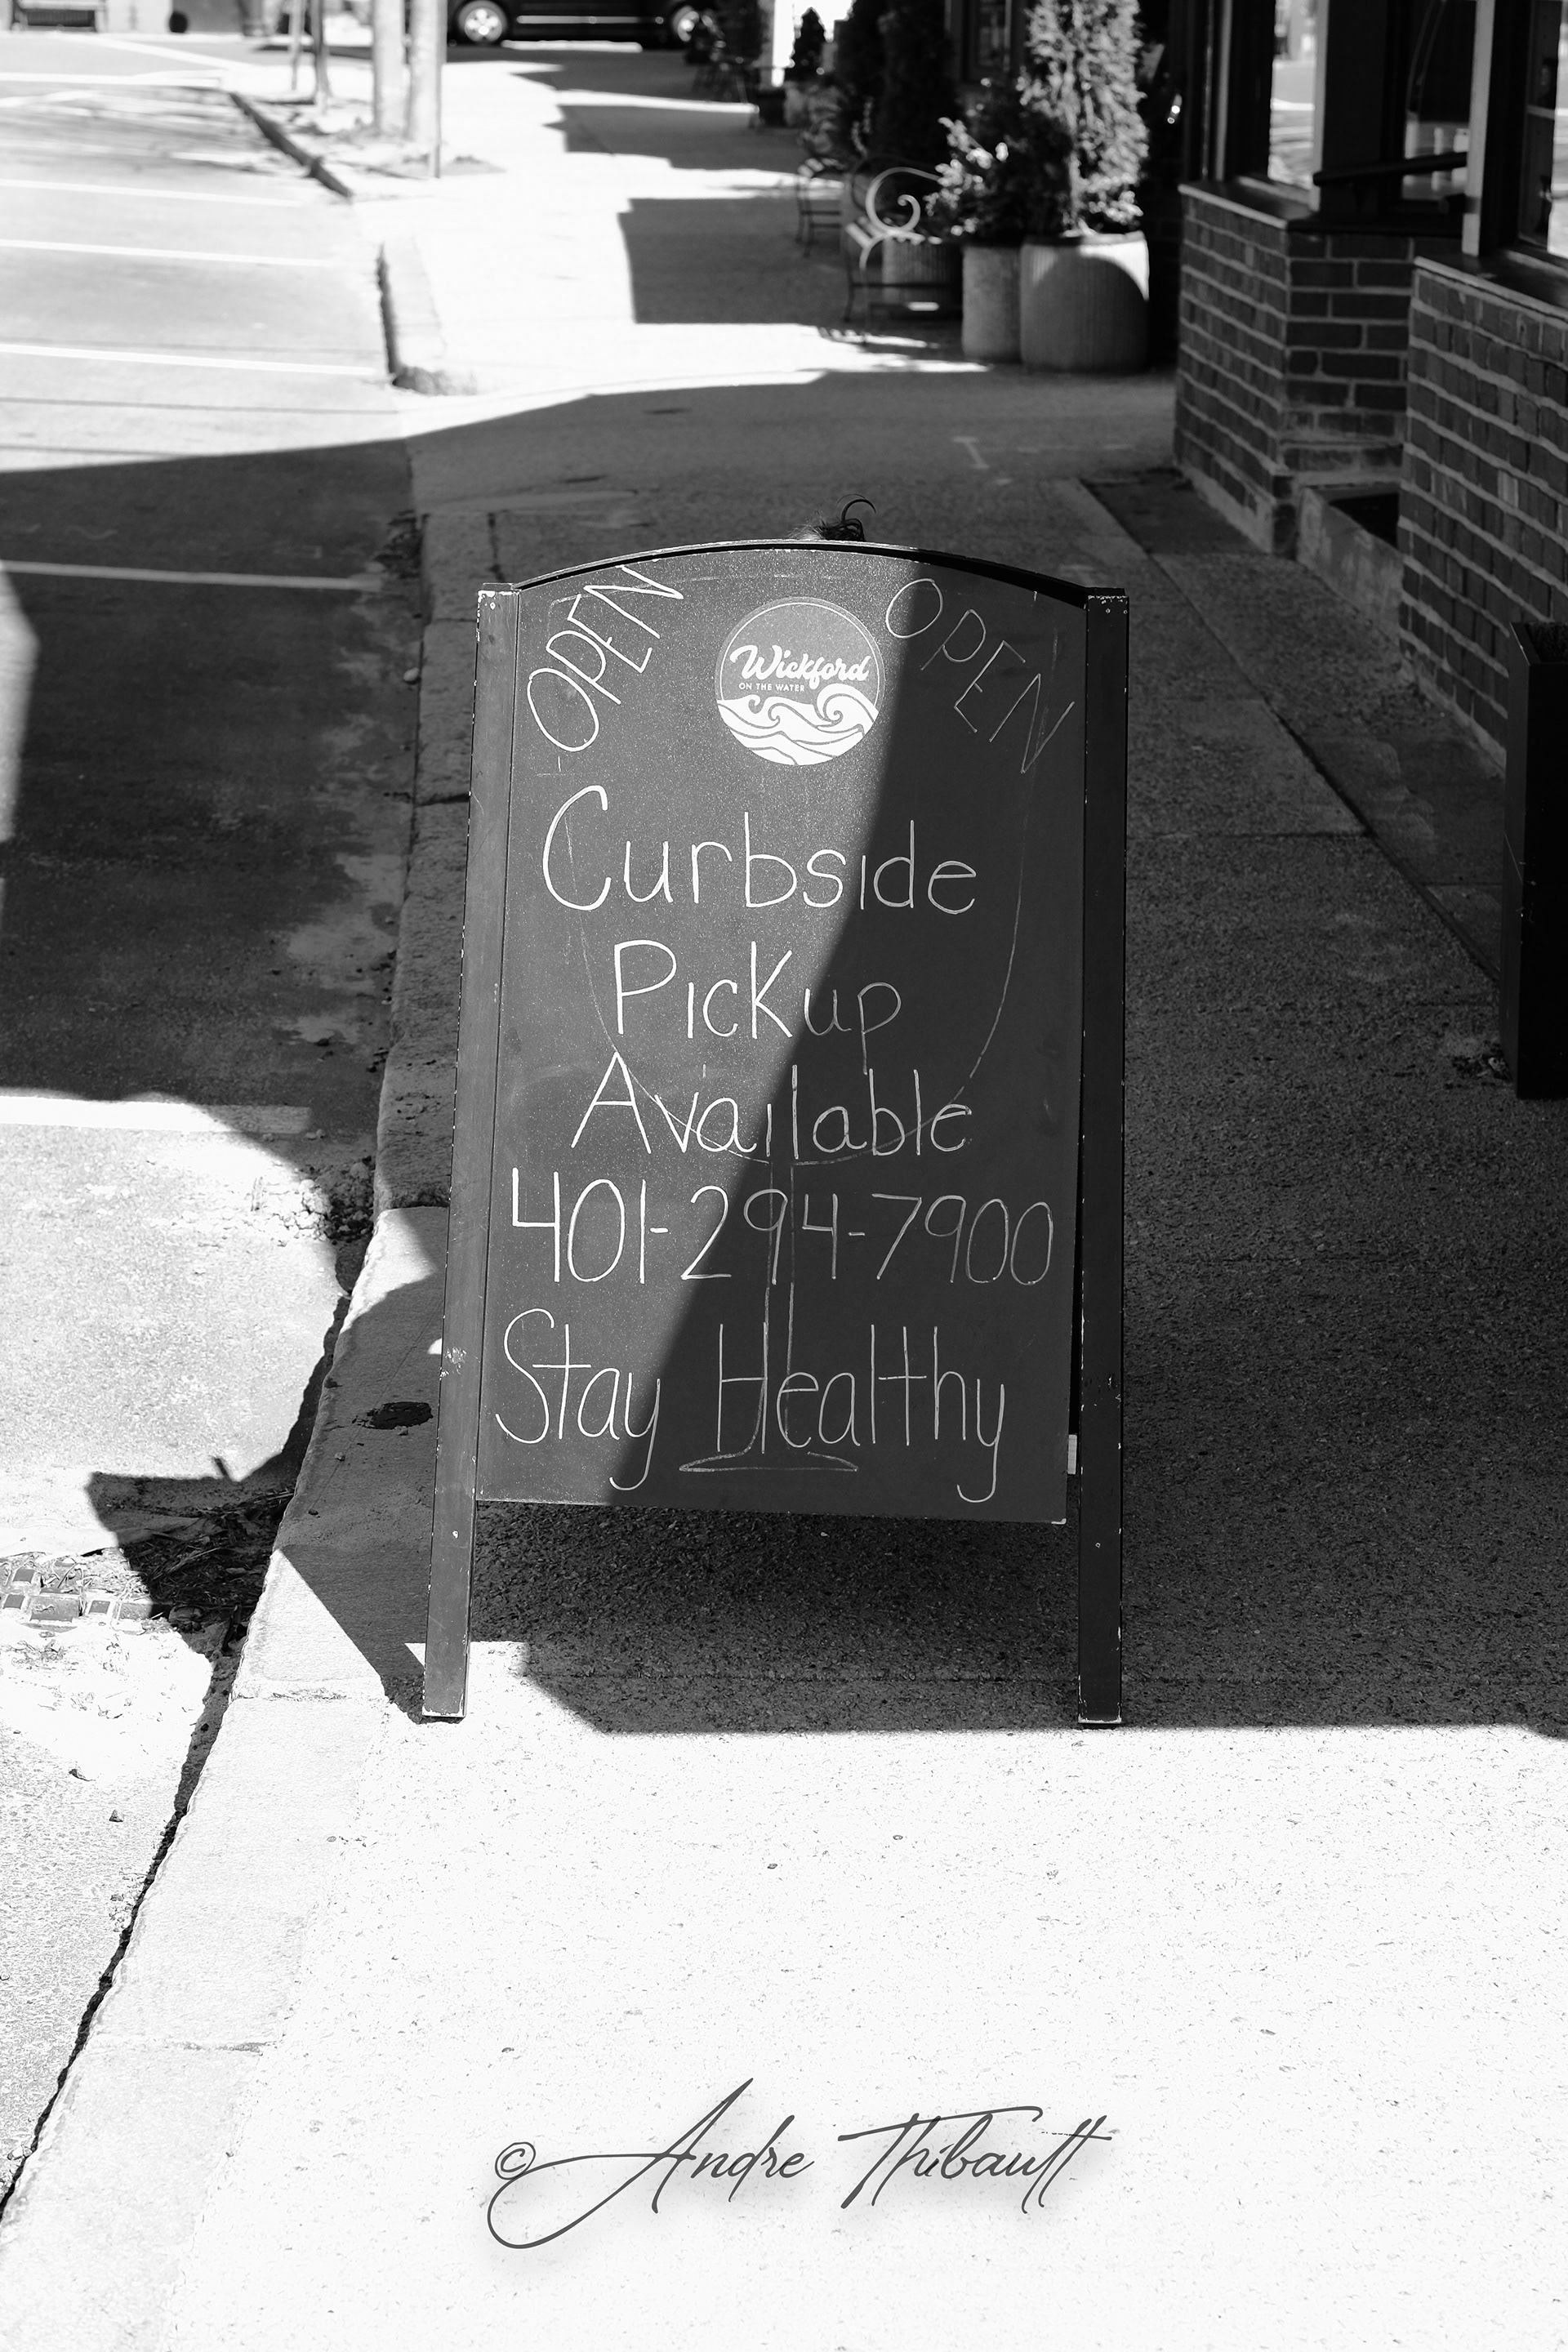 OPEN
Wickford
ON THE WATER
OPEN
Curbside
Pickup
Available
401-294-7900
Stay Healthy
© Andre Thibault